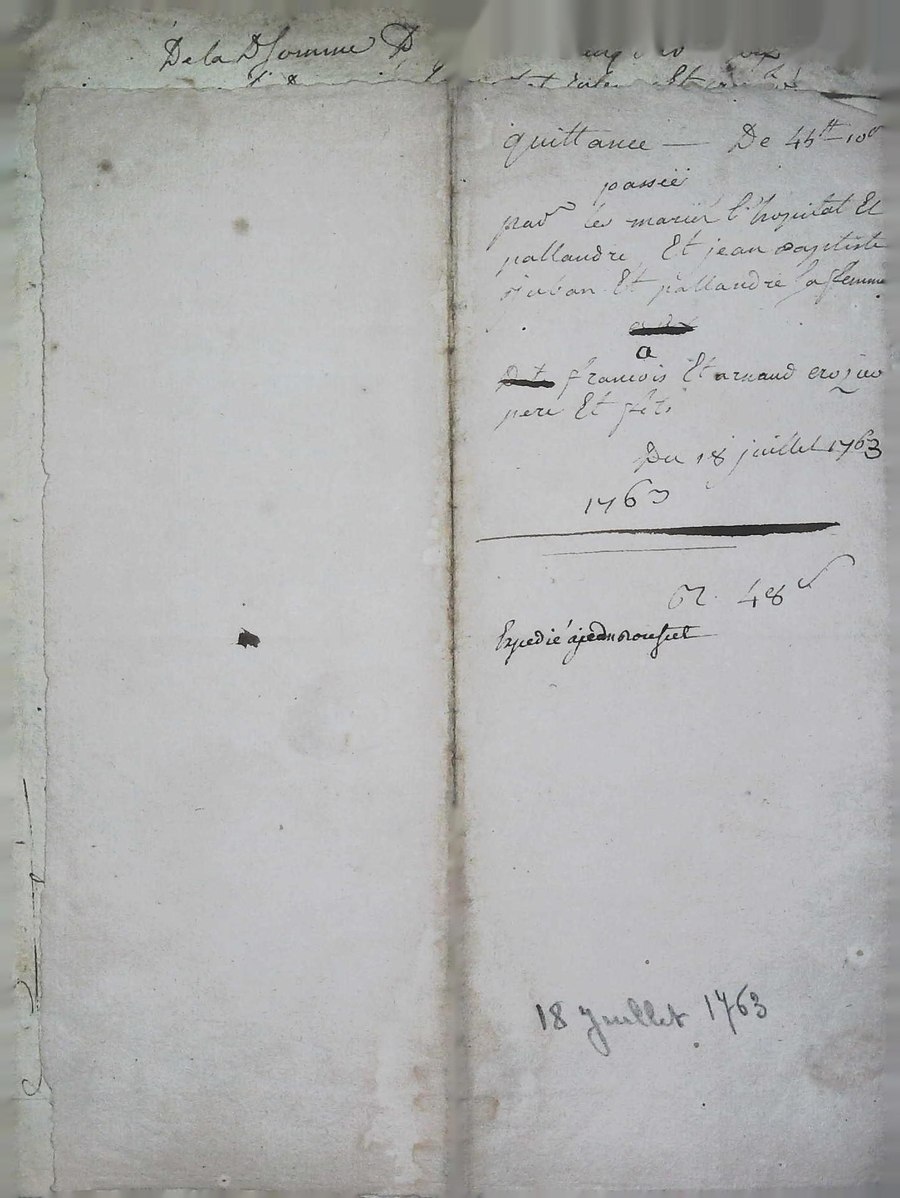 De la D somme D
quittance — De 45tt 10s
passée
par les mariés l'hopital Et
pallandre Et jean Baptiste
Et pallandre sa femme
a
françois Et arnaud crozier
pere Et fils
Du 18 juillet 1763
1763
62. 48
Expedié a jean rousset
18 juillet 1763